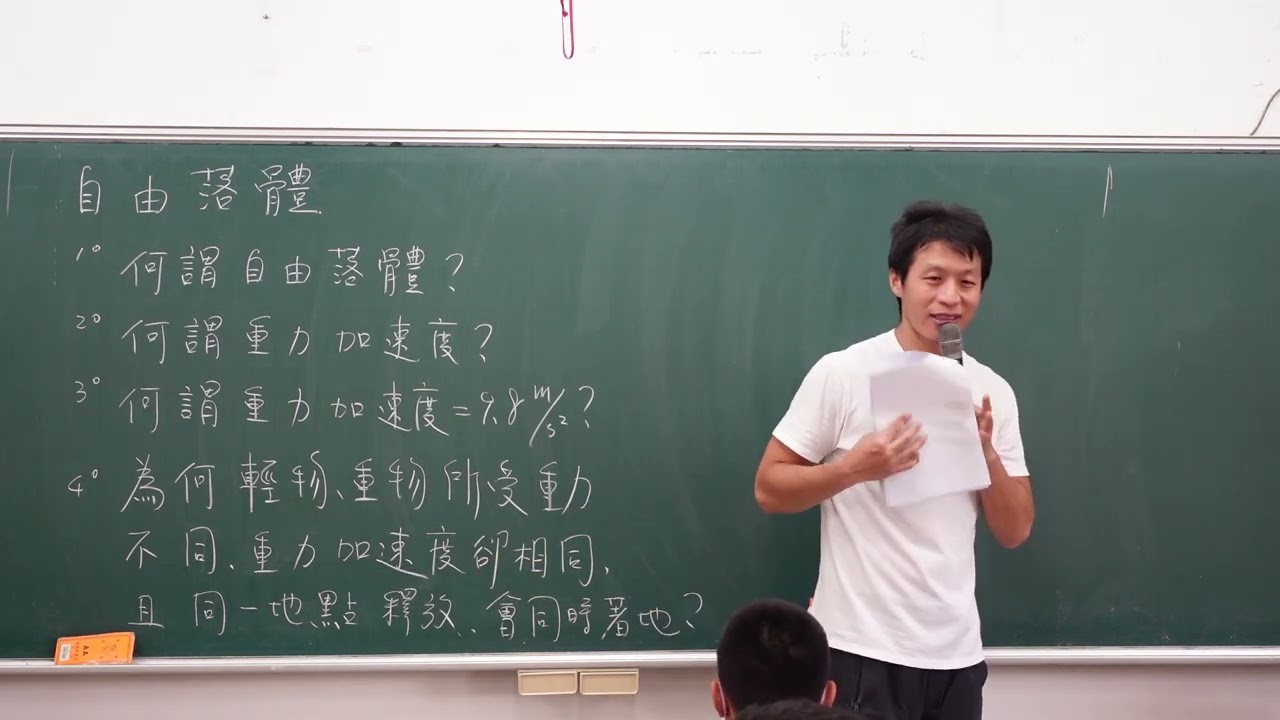 自由落體
1° 何謂自由落體?
2° 何謂重力加速度?
3° 何謂重力加速度=9.8 m/s²?
4° 為何輕物、重物所受重力
不同、重力加速度卻相同,
且同一地點釋放、會同時著地?
AA